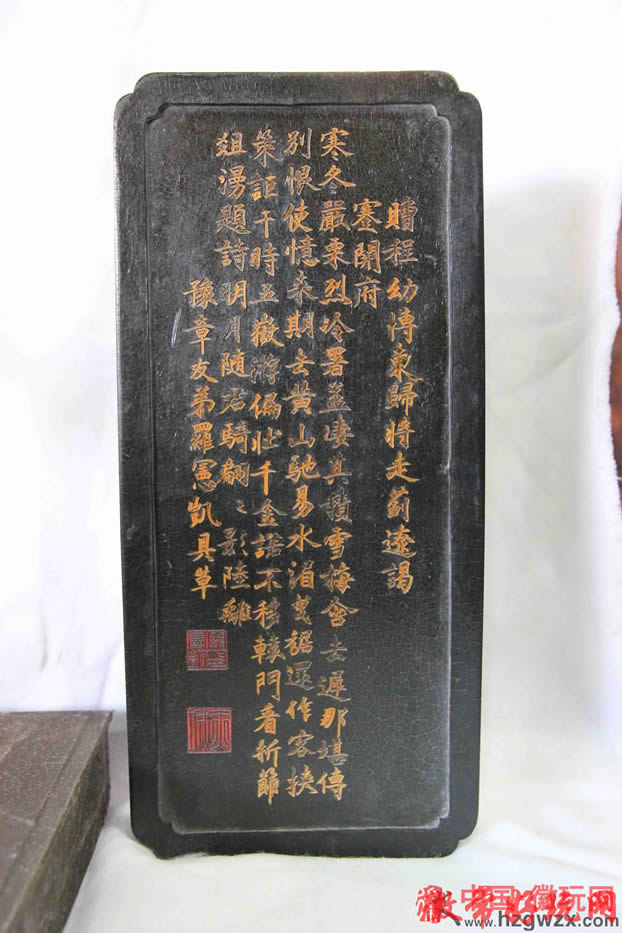 贈程幼博東歸將走薊遼謁
蹇開府
寒冬嚴栗烈冷署益淒其積雪梅含去遲那堪傳
別恨使憶來期去黃山馳易水淄曳裾還作客挾
策詎干時五嶽游偏壯千金諾不移轅門看折節
爼漫題詩明月随君騎翩〻影陸離
豫章友弟羅憲凱具草
www.hzgwzx.com